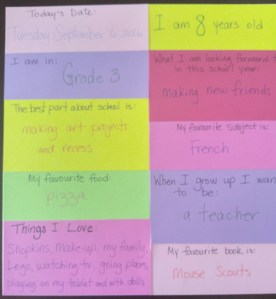 Today's Date:
Tuesday September 6, 2016
I am in:
Grade 3
The best part about school is:
making art projects
and recess
My favourite food:
pizza
Things I Love
Shopkins, make-up, my family,
Lego, watching tv, going places,
playing on my tablet and with dolls
I am 8 years old
What I am looking forward to
in this school year:
making new friends
My favourite Subject is:
French
When I grow up I want
to be:
a teacher
My favourite book is:
Mouse Scouts